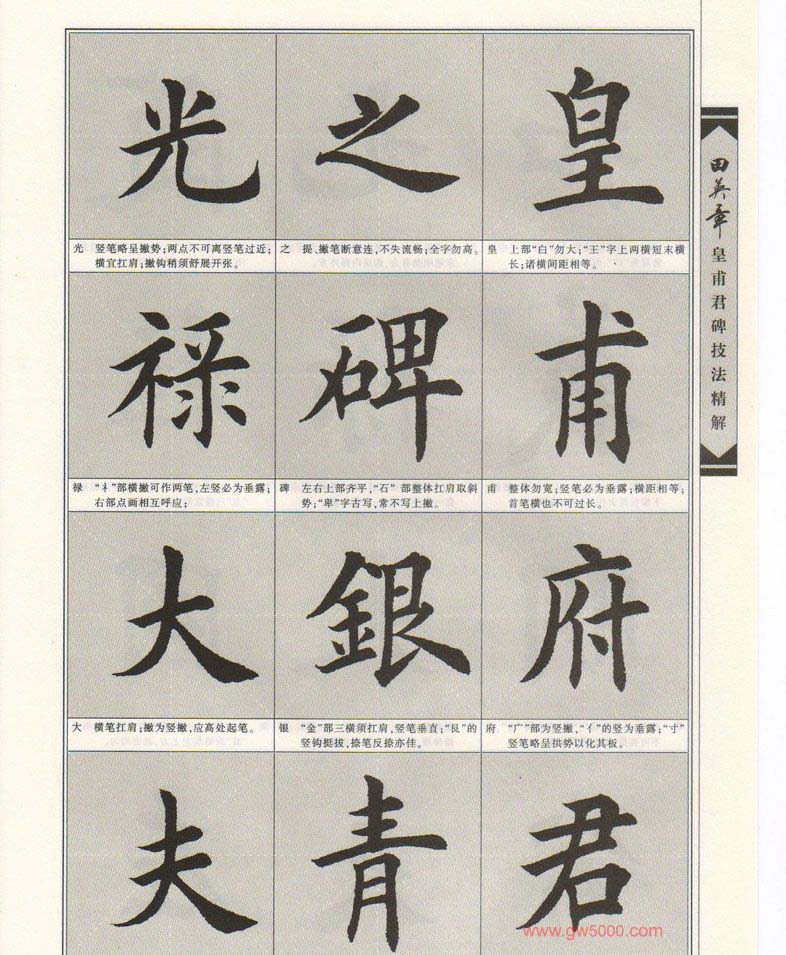 皇
上部“白”勿大；“王”字上两横短末横
长；诸横间距相等。
甫
整体勿宽；竖笔必为垂露；横距相等；
首笔横也不可过长。
府
“广”部为竖撇，“亻”的竖为垂露；“寸”
竖笔略呈拱势以化其板。
君
之
提、撇笔断意连，不失流畅；全字勿高。
碑
左右上部齐平，“石”部整体扛肩取斜
势；“卑”字古写，常不写上撇。
银
“金”部三横须扛肩，竖笔垂直；“艮”的
竖钩挺拔，捺笔反捺亦佳。
青
光
竖笔略呈撇势；两点不可离竖笔过近；
横宜扛肩；撇钩稍须舒展开张。
禄
“礻”部横撇可作两笔，左竖必为垂露；
右部点画相互呼应；
大
横笔扛肩；撇为竖撇，应高处起笔。
夫
皇
之
光
甫
碑
禄
府
銀
大
田英章
皇甫君碑技法精解
www.gw5000.com